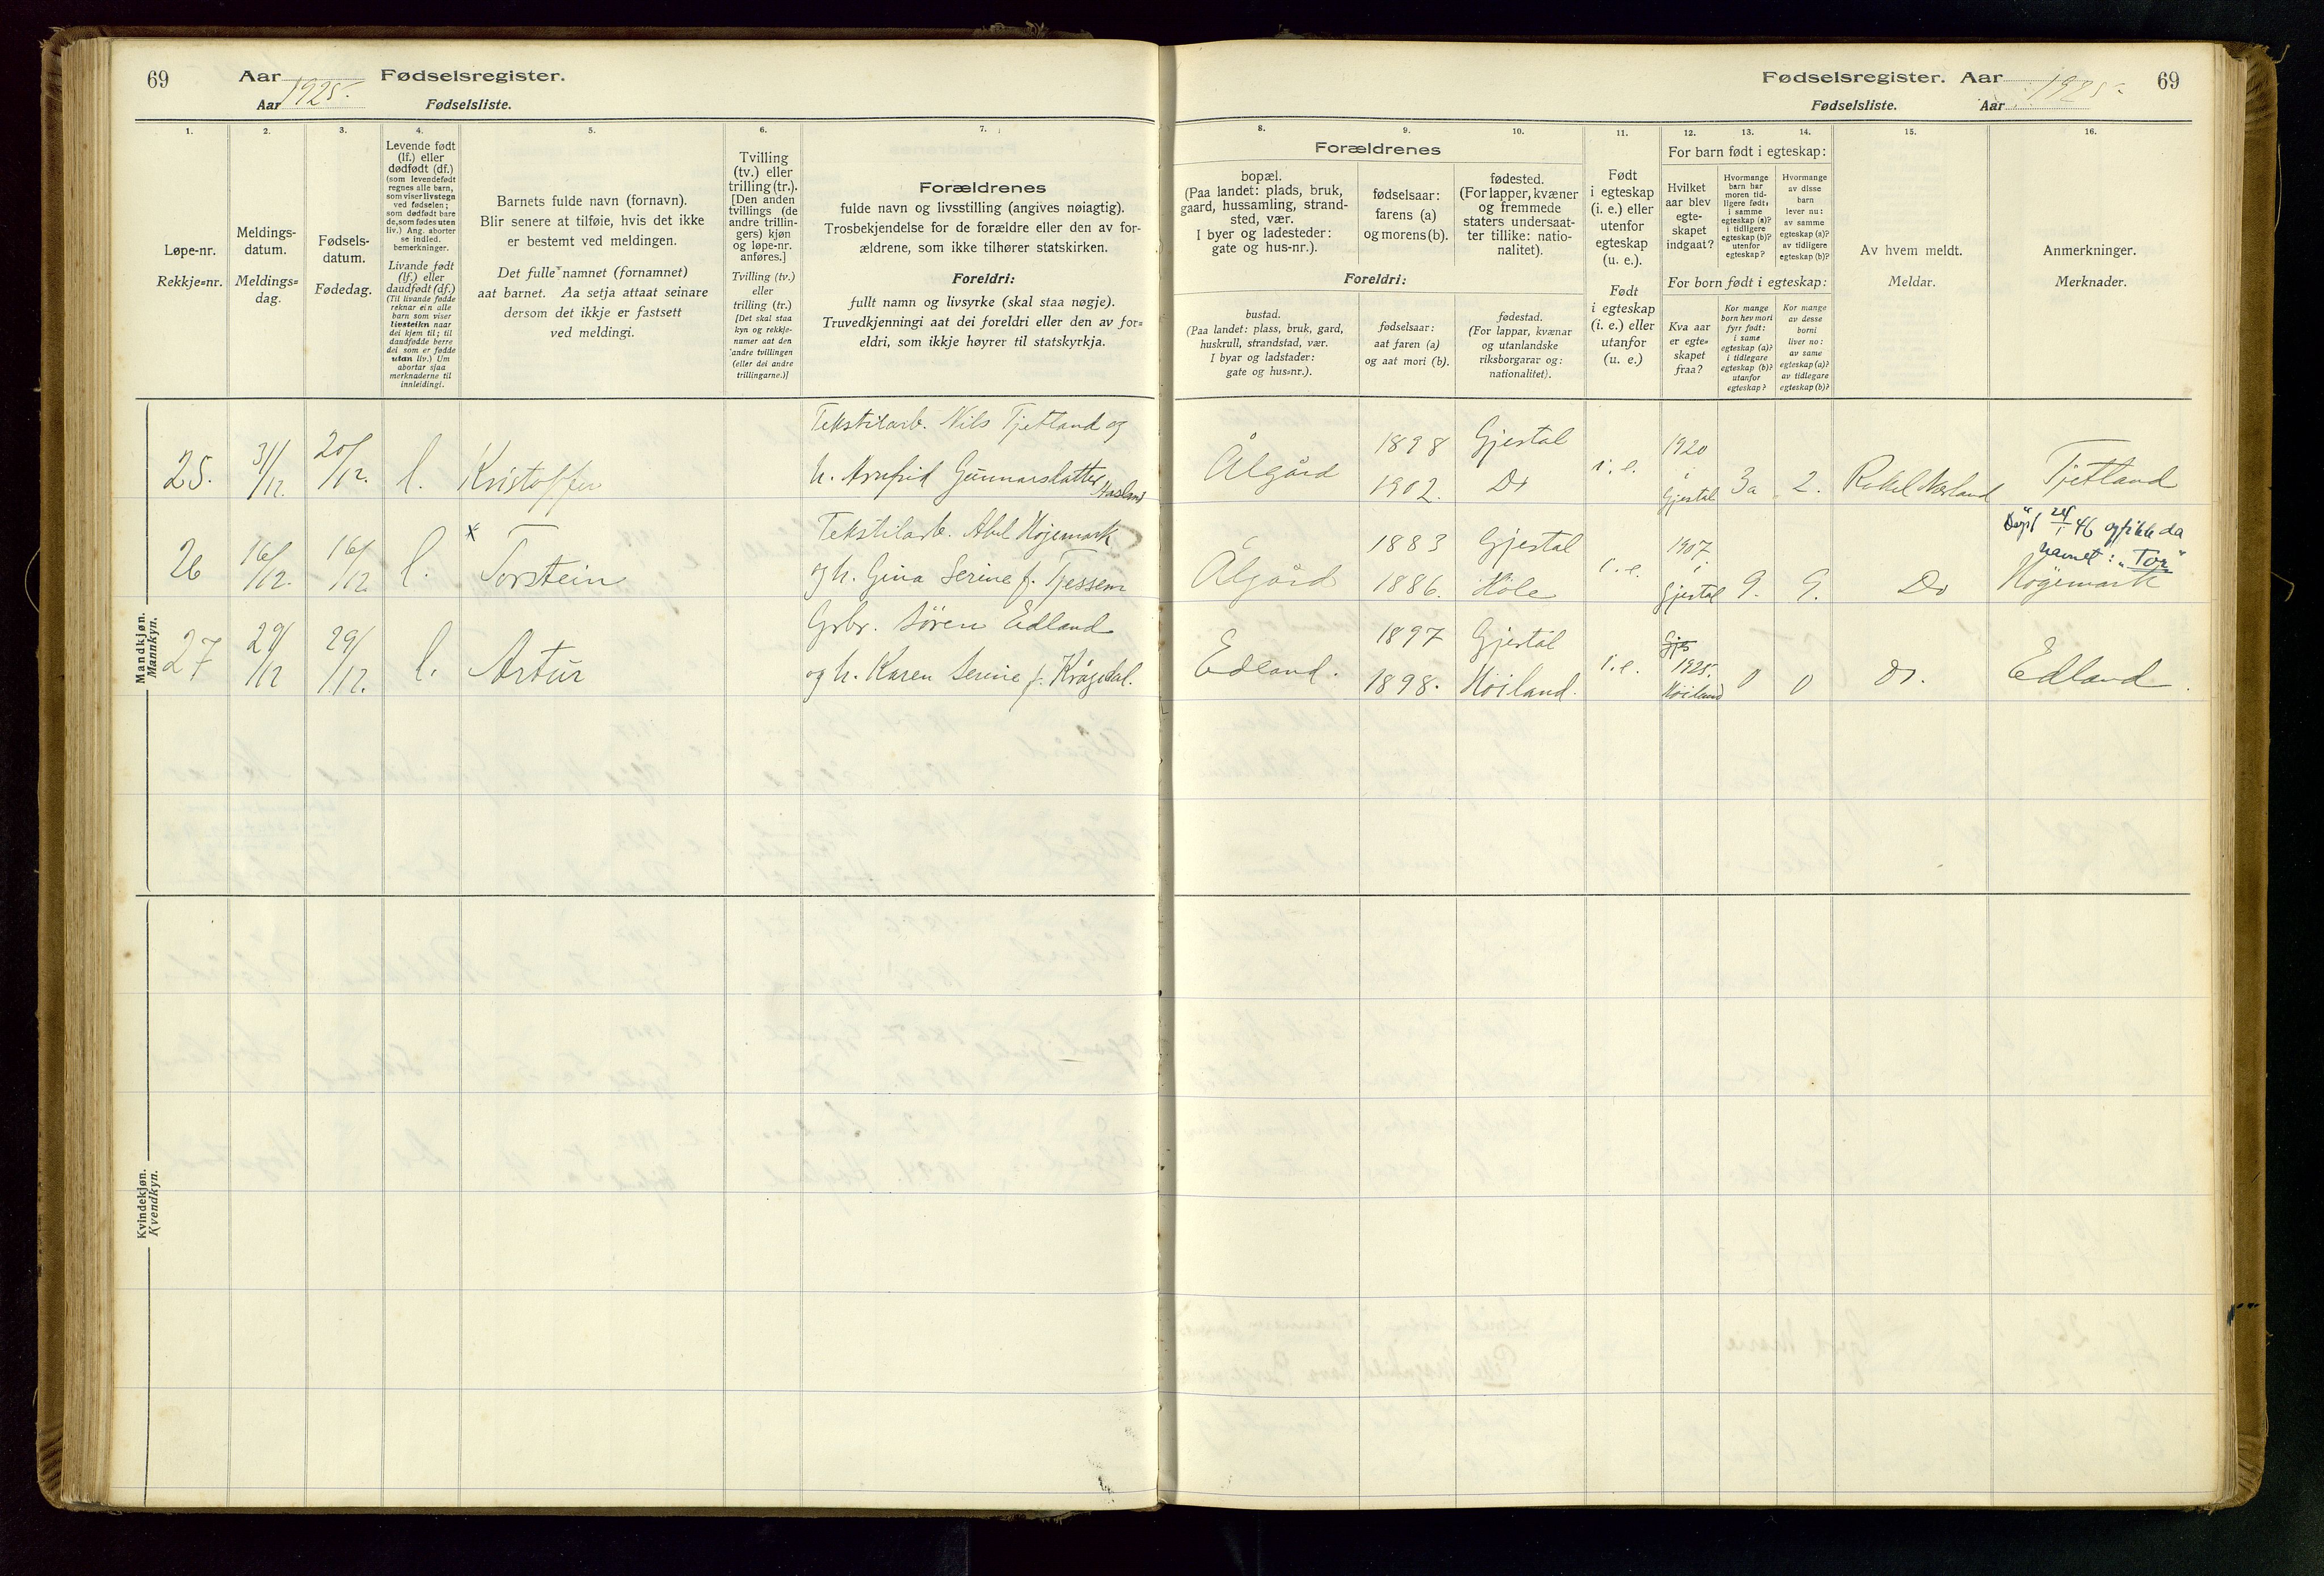 69
Aar 1925.
Fødselsregister.
Aar
Fødselsliste.
Fødselsregister. Aar 1925.
69
Fødselsliste.
Aar
1.
2.
3.
4.
5.
6.
7.
8.
9.
10.
11.
12.
13.
14.
15.
16.
Løpe-nr.
Rekkje=nr.
Meldings-
datum.
Meldings=
dag.
Fødsels-
datum.
Fødedag.
Levende født
(lf.) eller
dødfødt (df.)
(som levendefødt
regnes alle barn,
som viser livstegn
ved fødselen;
som dødfødt bare
de, som fødes uten
liv.) Ang. aborter
se indled.
bemerkninger.
Livande født
(lf.) eller
daudfødt (df.)
(Til livande fødde
reknar ein alle
barn som viser
livsteikn naar
dei kjem til; til
daudfødde berre
dei som er fødde
utan liv.) Um
abortar sjaa
merknaderne til
innleidingi.
Barnets fulde navn (fornavn).
Blir senere at tilføie, hvis det ikke
er bestemt ved meldingen.
Det fulle namnet (fornamnet)
aat barnet. Aa setja attaat seinare
dersom det ikkje er fastsett
ved meldingi.
Tvilling
(tv.) eller
trilling (tr.).
[Den anden
tvillings (de
andre trillin-
gers) kjøn
og løpe-nr.
anføres.]
Tvilling (tv.)
eller
trilling (tr.)
[Det skal staa
kyn og rekkje-
numer aat den
andre tvillingen
(eller dei andre
trillingarne.)]
Forældrenes
fulde navn og livsstilling (angives nøiagtig).
Trosbekjendelse for de forældre eller den av for-
ældrene, som ikke tilhører statskirken.
Foreldri:
fullt namn og livsyrke (skal staa nøgje).
Truvedkjenningi aat dei foreldri eller den av for=
eldri, som ikkje høyrer til statskyrkja.
Forældrenes
bopæl.
(Paa landet: plads, bruk,
gaard, hussamling, strand-
sted, vær.
I byer og ladesteder:
gate og hus-nr.).
fødselsaar:
farens (a)
og morens (b).
fødested.
(For lapper, kvæner
og fremmede
staters undersaat-
ter tillike: natio-
nalitet).
Foreldri:
bustad.
(Paa landet: plass, bruk, gard,
huskrull, strandstad, vær.
I byar og ladstader:
gate og hus=nr.).
fødselsaar:
aat faren (a)
og aat mori (b).
fødestad.
(For lappar, kvænar
og utanlandske
riksborgarar og:
nationalitet).
Født
i egteskap
(i. e.) eller
utenfor
egteskap
(u. e.).
Født
i egteskap
(i. e.) eller
utanfor
(u. e.)
For barn født i egteskap:
Hvilket
aar blev
egte-
skapet
indgaat?
Hvormange
barn har
moren tid-
ligere født,
i samme
egteskap (a)?
i tidligere
egteskap (b)?
utenfor
egteskap?
Hvormange
av disse
barn
lever nu:
av samme
egteskap (a)?
av tidligere
egteskap (b)?
For born født i egteskap:
Kva aar
er egte=
skapet
fraa?
Kor mange
born hev mori
fyrr født:
i same
egteskap (a)?
i tidlegare
egteskap (b)?
utanfor
egteskap?
Kor mange
av desse
borni
liver no:
av same
egteskap (a)?
av tidlegare
egteskap (b)?
Av hvem meldt.
Meldar.
Anmerkninger.
Merknader.
Mandkjøn.
Mannkyn.
25. 31/12. 20/12. l. Kristoffer
Tekstilarb. Nils Tjetland og
h. Arnfrid Gunnarsdatter
Ålgård 1898 Gjestal i. e. 1920
1902. Do i Gjestal 3a 2. Rakel Nærland Tjetland
26 16/12. 16/12. l. × Torstein
Tekstilarb. Abel Høgemark
og h. Gina Serine f. Tjessem
Ålgård 1883 Gjestal i. e. 1907
1886. Høle i Gjestal 9. 9. Do
Døpt 24/1 46 og fikk da
navnet: "Tor"
Høgemark
27 29/12 29/12. l. Artur
Grbr. Søren Edland
og h. Karen Serine f. Krågedal.
Edland. 1897 Gjestal i. e. Gjes
1925.
1898. Høiland. Høiland 0 0 Do. Edland
Kvindekjøn.
Kvendkyn.